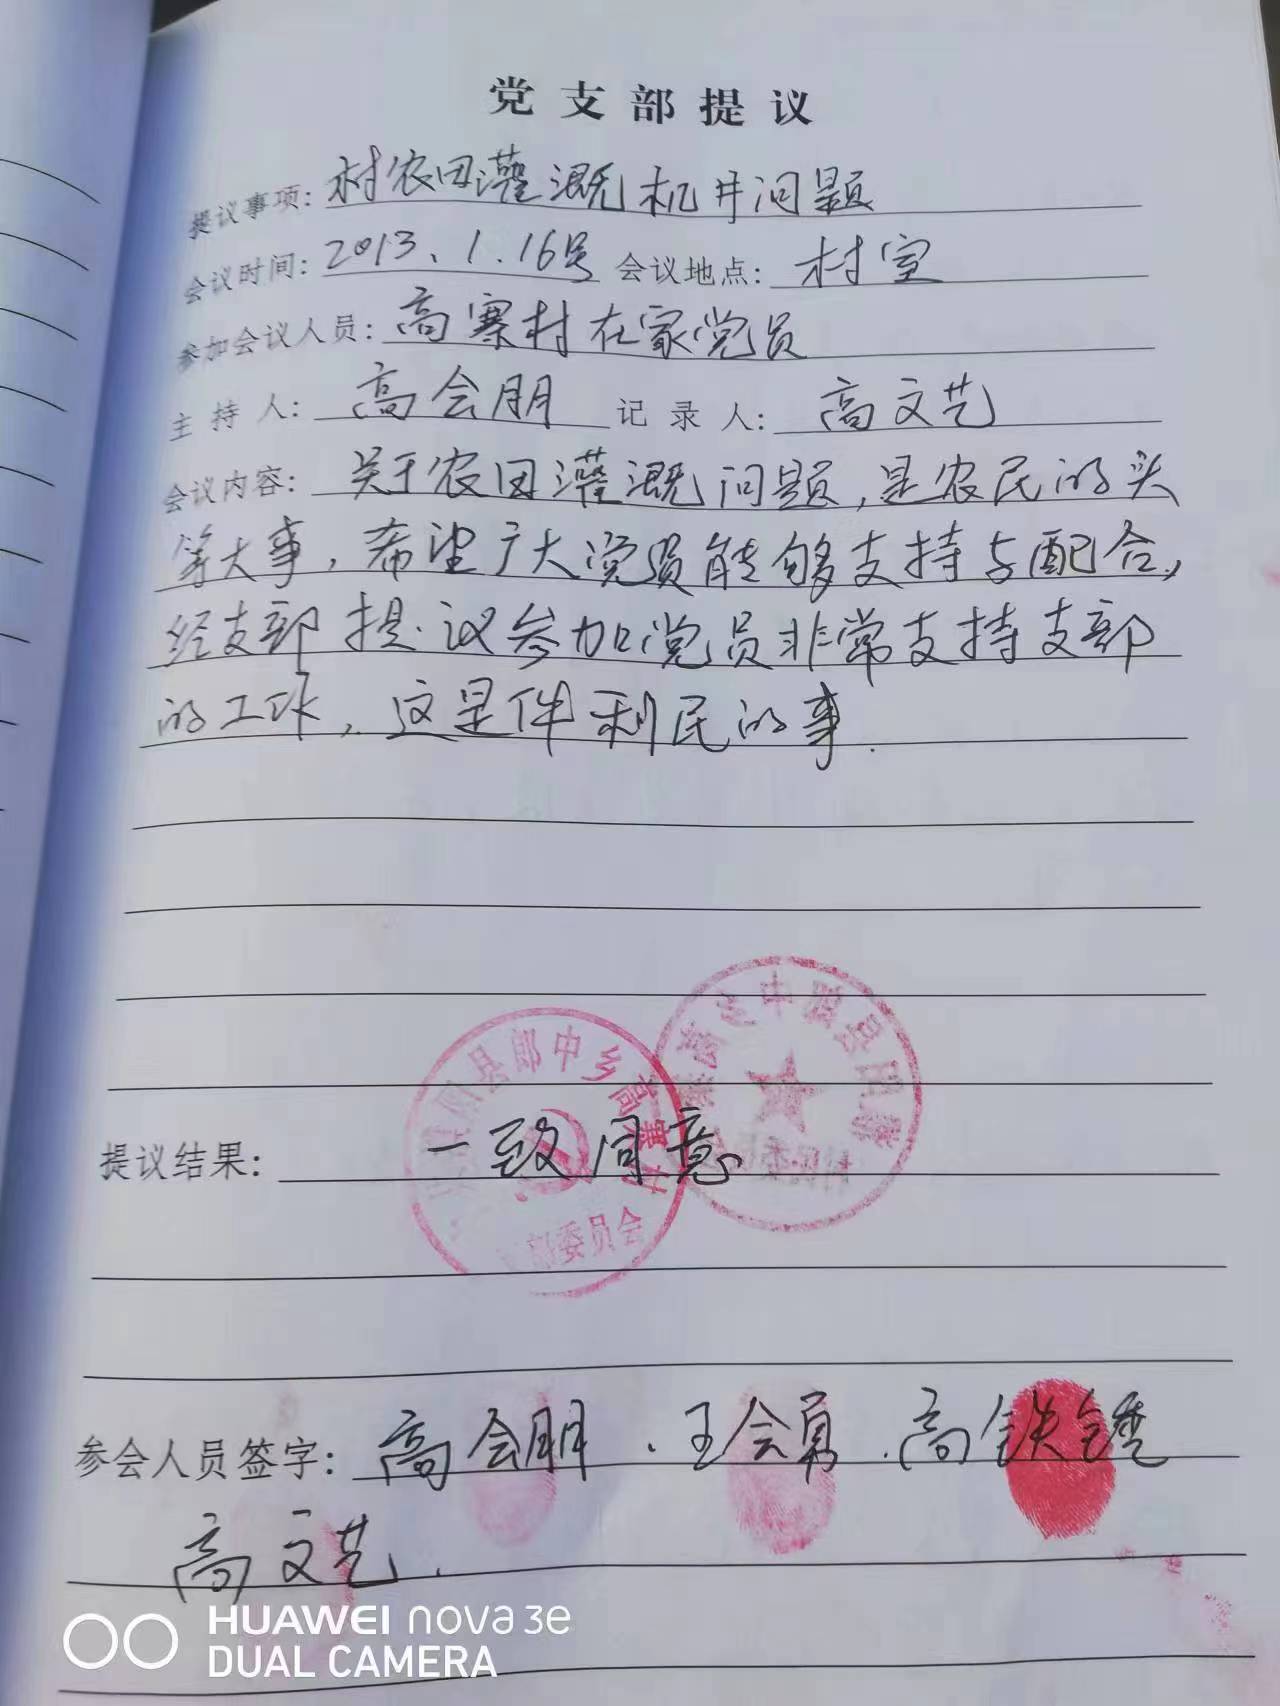 党支部提议
提议事项: 村农田灌溉机井问题
会议时间: 2013、1.16号 会议地点: 村室
参加会议人员: 高寨村在家党员
主持人: 高会朋 记录人: 高文艺
会议内容: 关于农田灌溉问题,是农民的头
等大事,希望广大党员能够支持与配合,
经支部提议参加党员非常支持支部
的工作,这是件利民的事.
县郎中乡高寨村
部委员会
提议结果: 一致同意
参会人员签字: 高会朋、王会勇.高铁锤
高文艺.
HUAWEI nova 3e
DUAL CAMERA